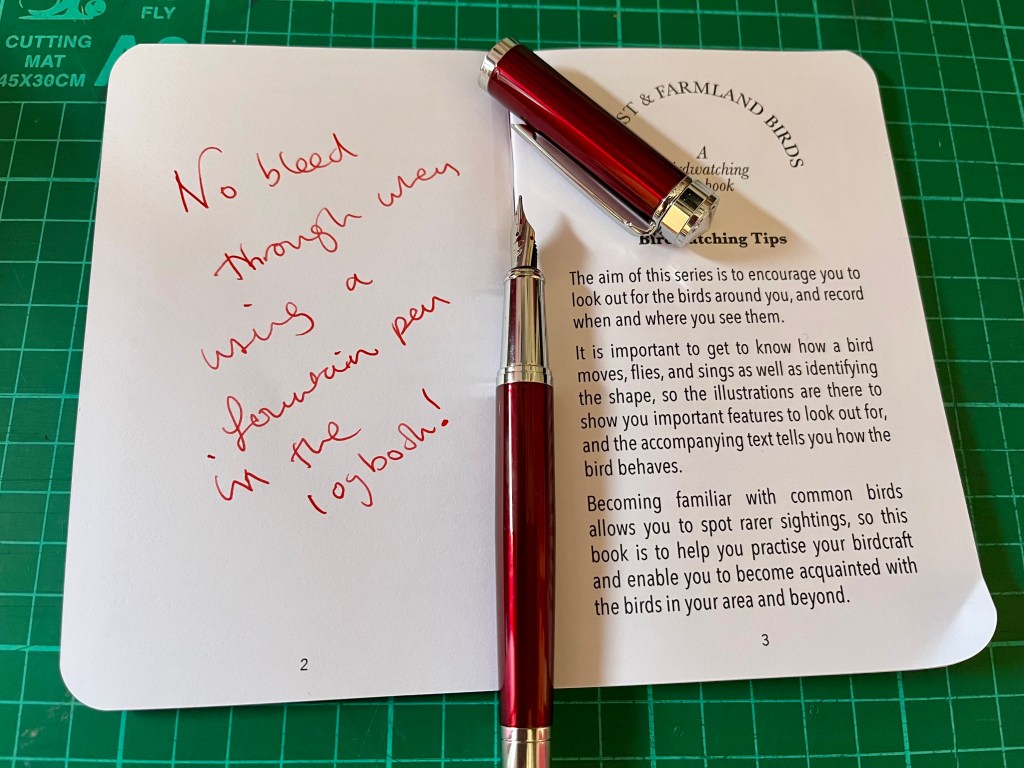 FLY
CUTTING
MAT
45X30CM
No bleed
through when
using a
fountain pen
in the
logbook!
2
& FARMLAND BIRDS
A
Tips
The aim of this series is to encourage you to
look out for the birds around you, and record
when and where you see them.
It is important to get to know how a bird
moves, flies, and sings as well as identifying
the shape, so the illustrations are there to
show you important features to look out for,
and the accompanying text tells you how the
bird behaves.
Becoming familiar with common birds
allows you to spot rarer sightings, so this
book is to help you practise your birdcraft
and enable you to become acquainted with
the birds in your area and beyond.
3